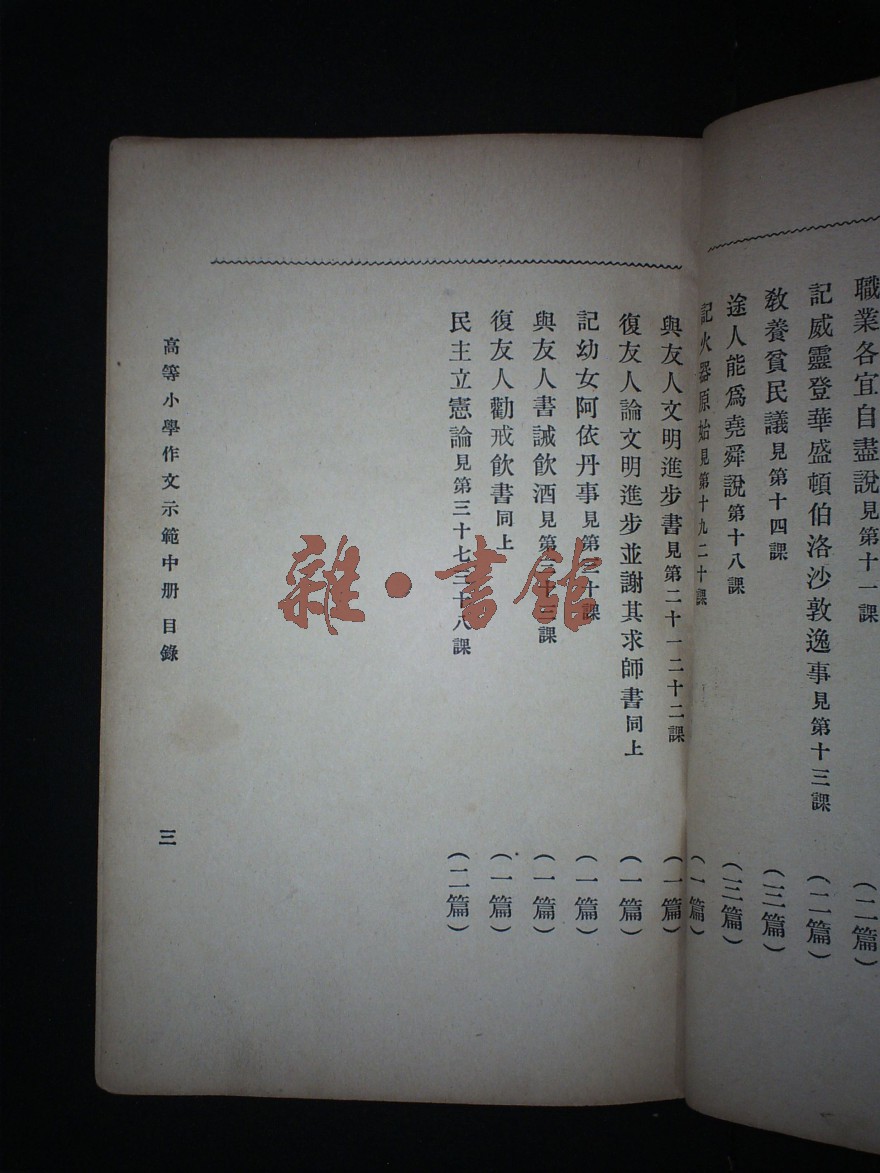 職業各宜自盡說見第十一課（二篇）
記威靈登華盛頓伯洛沙敦逸事見第十三課（二篇）
教養貧民議見第十四課（三篇）
途人能爲堯舜說第十八課（三篇）
記火器原始見第十九二十課（一篇）
與友人文明進步書見第二十一二十二課（一篇）
復友人論文明進步並謝其求師書同上（一篇）
記幼女阿依丹事見第三十課（一篇）
與友人書誡飲酒見第三十三課（一篇）
復友人勸戒飲書同上（一篇）
民主立憲論見第三十七三十八課（二篇）
高等小學作文示範中册 目錄
三
雜·書館